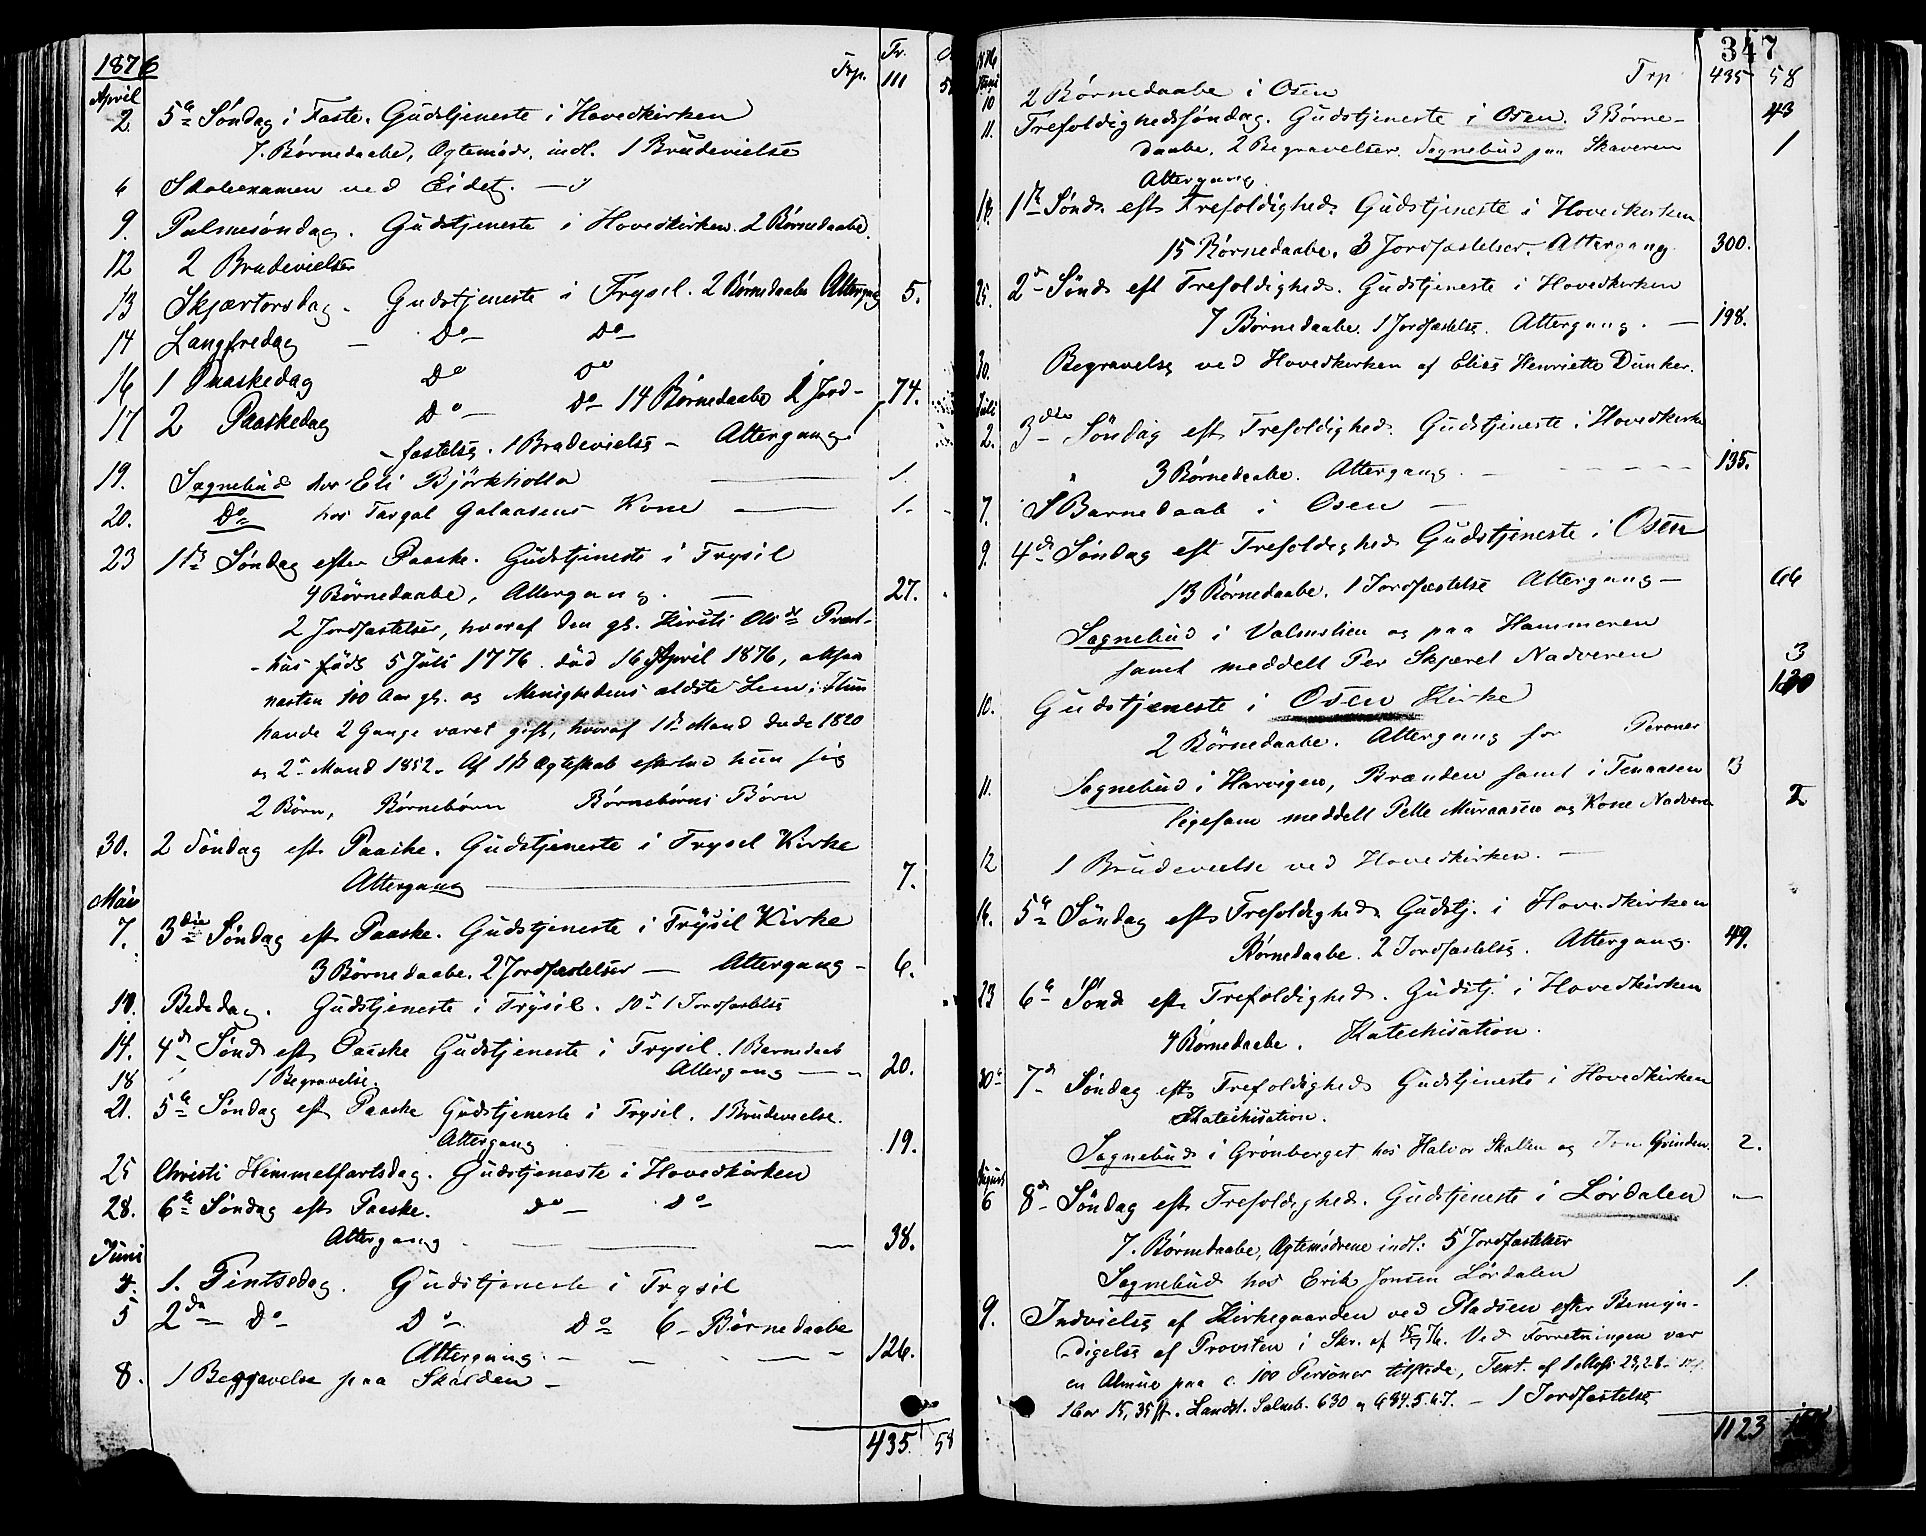 1876 Trp. Fr. 111
April
2. 5te Søndag i Faste. Gudstjeneste i Hovedkirken
7. Børnedaabe, indl. 1 Brudevielse
6 Skoleexamen ved Eidet.
9. Palmesøndag. Gudstjeneste i Hovedkirken. 2 Børnedaabe.
12 2 Brudevielser
13 Skjærtorsdag. Gudstjeneste i Trysil. 2 Børnedaabe Altergang 5.
14 Langfredag — Do — Do —
16 1 Paaskedag Do Do
17 2 Paaskedag Do — Do — 14 Børnedaabe 1 Jord- 74.
-fæstelse. 1 Brudevielse — Altergang
19. Sognebud hos Eli Bjørkholla — 1.
20. Do hos Targal Galaasens Kone — 1.
23 1ste Søndag efter Paaske. Gudstjeneste i Trysil
4 Børnedaabe, Altergang. — 27.
2 Jordfæstelser, hvoraf den gl. Kirsti Olsdr Præst-
-hus født 5 Juli 1776. død 16 April 1876, altsaa
næsten 100 Aar gl. og Menighedens ældste Lem; Hun
havde 2 Gange været gift, hvoraf 1ste Mand døde 1820
og 2den Mand 1852. Af 1ste Ægteskab efterlod hun sig
2 Børn, Børnebørn Børnebørns Børn
30. 2 Søndag eft. Paaske. Gudstjeneste i Trysil Kirke
Altergang — 7.
Mai
7. 3die Søndag eft. Paaske. Gudstjeneste i Trysil Kirke
3 Børnedaabe. 2 Jordfæstelser — Altergang — 6.
10. Bededag. Gudstjeneste i Trysil. 10de 1 Jordfæstelse
14. 4de Sønd eft Paaske Gudstjeneste i Trysil. 1 Barnedaab
18 1 Begravelse. Altergang — 20.
21. 5te Søndag eft Paaske Gudstjeneste i Trysil. 1 Brudevielse.
Altergang — 19.
25 Christi Himmelfartsdag. Gudstjeneste i Hovedkirken
28. 6te Søndag eft. Paaske. Do — Do —
Altergang — 38.
Juni
4. 1. Pintsedag. Gudstjeneste i Trysil
5 2den Do — Do — Do 6 Børnedaabe
Altergang. — 126.
8. 1 Begravelse paa Skården —
435. 58
347
1876 Trp. 435 58
Juni
10 2 Børnedaabe i Osen
11. Trefoldighedsøndag. Gudstjeneste i Osen. 3 Børne- 43
daabe. 2 Begravelser. Sognebud paa Skaveren 1
Altergang.
18. 1ste Sønd. eft Trefoldighed. Gudstjeneste i Hovedkirken
15 Børnedaabe. 3 Jordfæstelser. Altergang. 300.
25. 2den Sønd eft Trefoldighed. Gudstjeneste i Hovedkirken
7 Børnedaabe. 1 Jordfæstelse. Altergang. — 198.
30. Begravelse ved Hovedkirken af Elise Henriette Dunker.
Juli
2. 3die Søndag eft Trefoldighed. Gudstjeneste i Hovedkirke
3 Børnedaabe. Altergang. — 135.
7. 1 Barnedaab i Osen —
9. 4de Søndag eft Trefoldighed Gudstjeneste i Osen
13 Børnedaabe. 1 Jordfæstelse Altergang — 66
Sognebud i Valmslien og paa Hammeren
samt meddelt Per Skjæret Nadveren 3
10. Gudstjeneste i Osen Kirke
2 Børnedaabe. Altergang for Personer
11. Sognebud i Harvigen, Brænden samt i Tenaasen 3
ligesom meddelt Pelle Muraasen og Kone Nadveren 2
12 1 Brudevielse ved Hovedkirken. —
16. 5te Søndag eft Trefoldighed. Gudstj. i Hovedkirken
Børnedaabe. 2 Jordfæstelse. Altergang. 49.
23 6te Sønd eft Trefoldighed. Gudstj. i Hovedkirken
4 Børnedaabe. Katechisation.
30te 7de Søndag eft Trefoldighed Gudstjeneste i Hovedkirken
Katechisation.
Sognebud i Grønberget hos Halvor Skallen og Jon Grinden. 2.
August
6 8de Søndag eft Trefoldighed. Gudstjeneste i Lørdalen —
7. Børnedaabe, Ægtemødrene indl: 5 Jordfæstelser
Sognebud hos Erik Jonsen Lørdalen 1.
9. Indvielse af Kirkegaarden ved Pladsen efter Bemyn-
-digelse af Provsten i Skr. af 76. Ved Forretningen var
en Almue paa c. 100 Personer tilstede, Text. af 1 Mos: 23,
1 Cor 15, 35 ff. Landst. Salmeb. 630 og 684. 5. 6.7. — 1 Jordfæstelse
1123